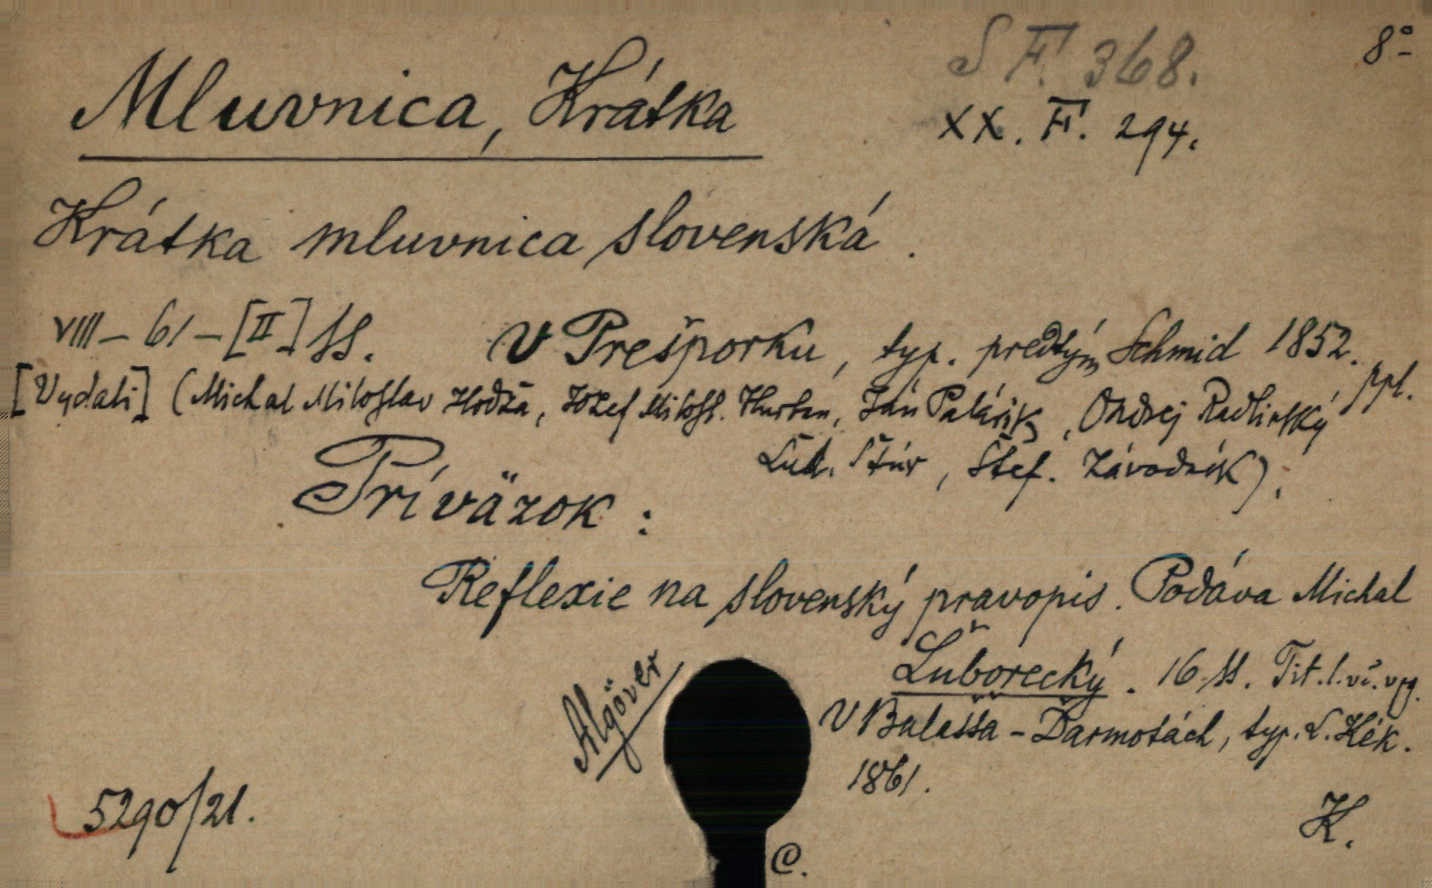 S F. 368.
8°
Mluvnica, Krátka
XX. F. 294.
Krátka mluvnica slovenská.
VIII – 61 – [II] ss. V Prešporku, typ. predtým Schmid 1852. ppl.
[Vydali] (Michal Miloslav Hodža, Jozef Milosl. Hurban, Ján Palárik, Ondrej Radlinský
Ľud. Štúr, Štef. Závodník).
Príväzok:
Reflexie na slovenský pravopis. Podáva Michal
Ľuborecký. 16 ss. Tit. l.
V Balašša-Ďarmotách, typ. L. Kék.
1861.
Algöver
5290/21.
K.
C.